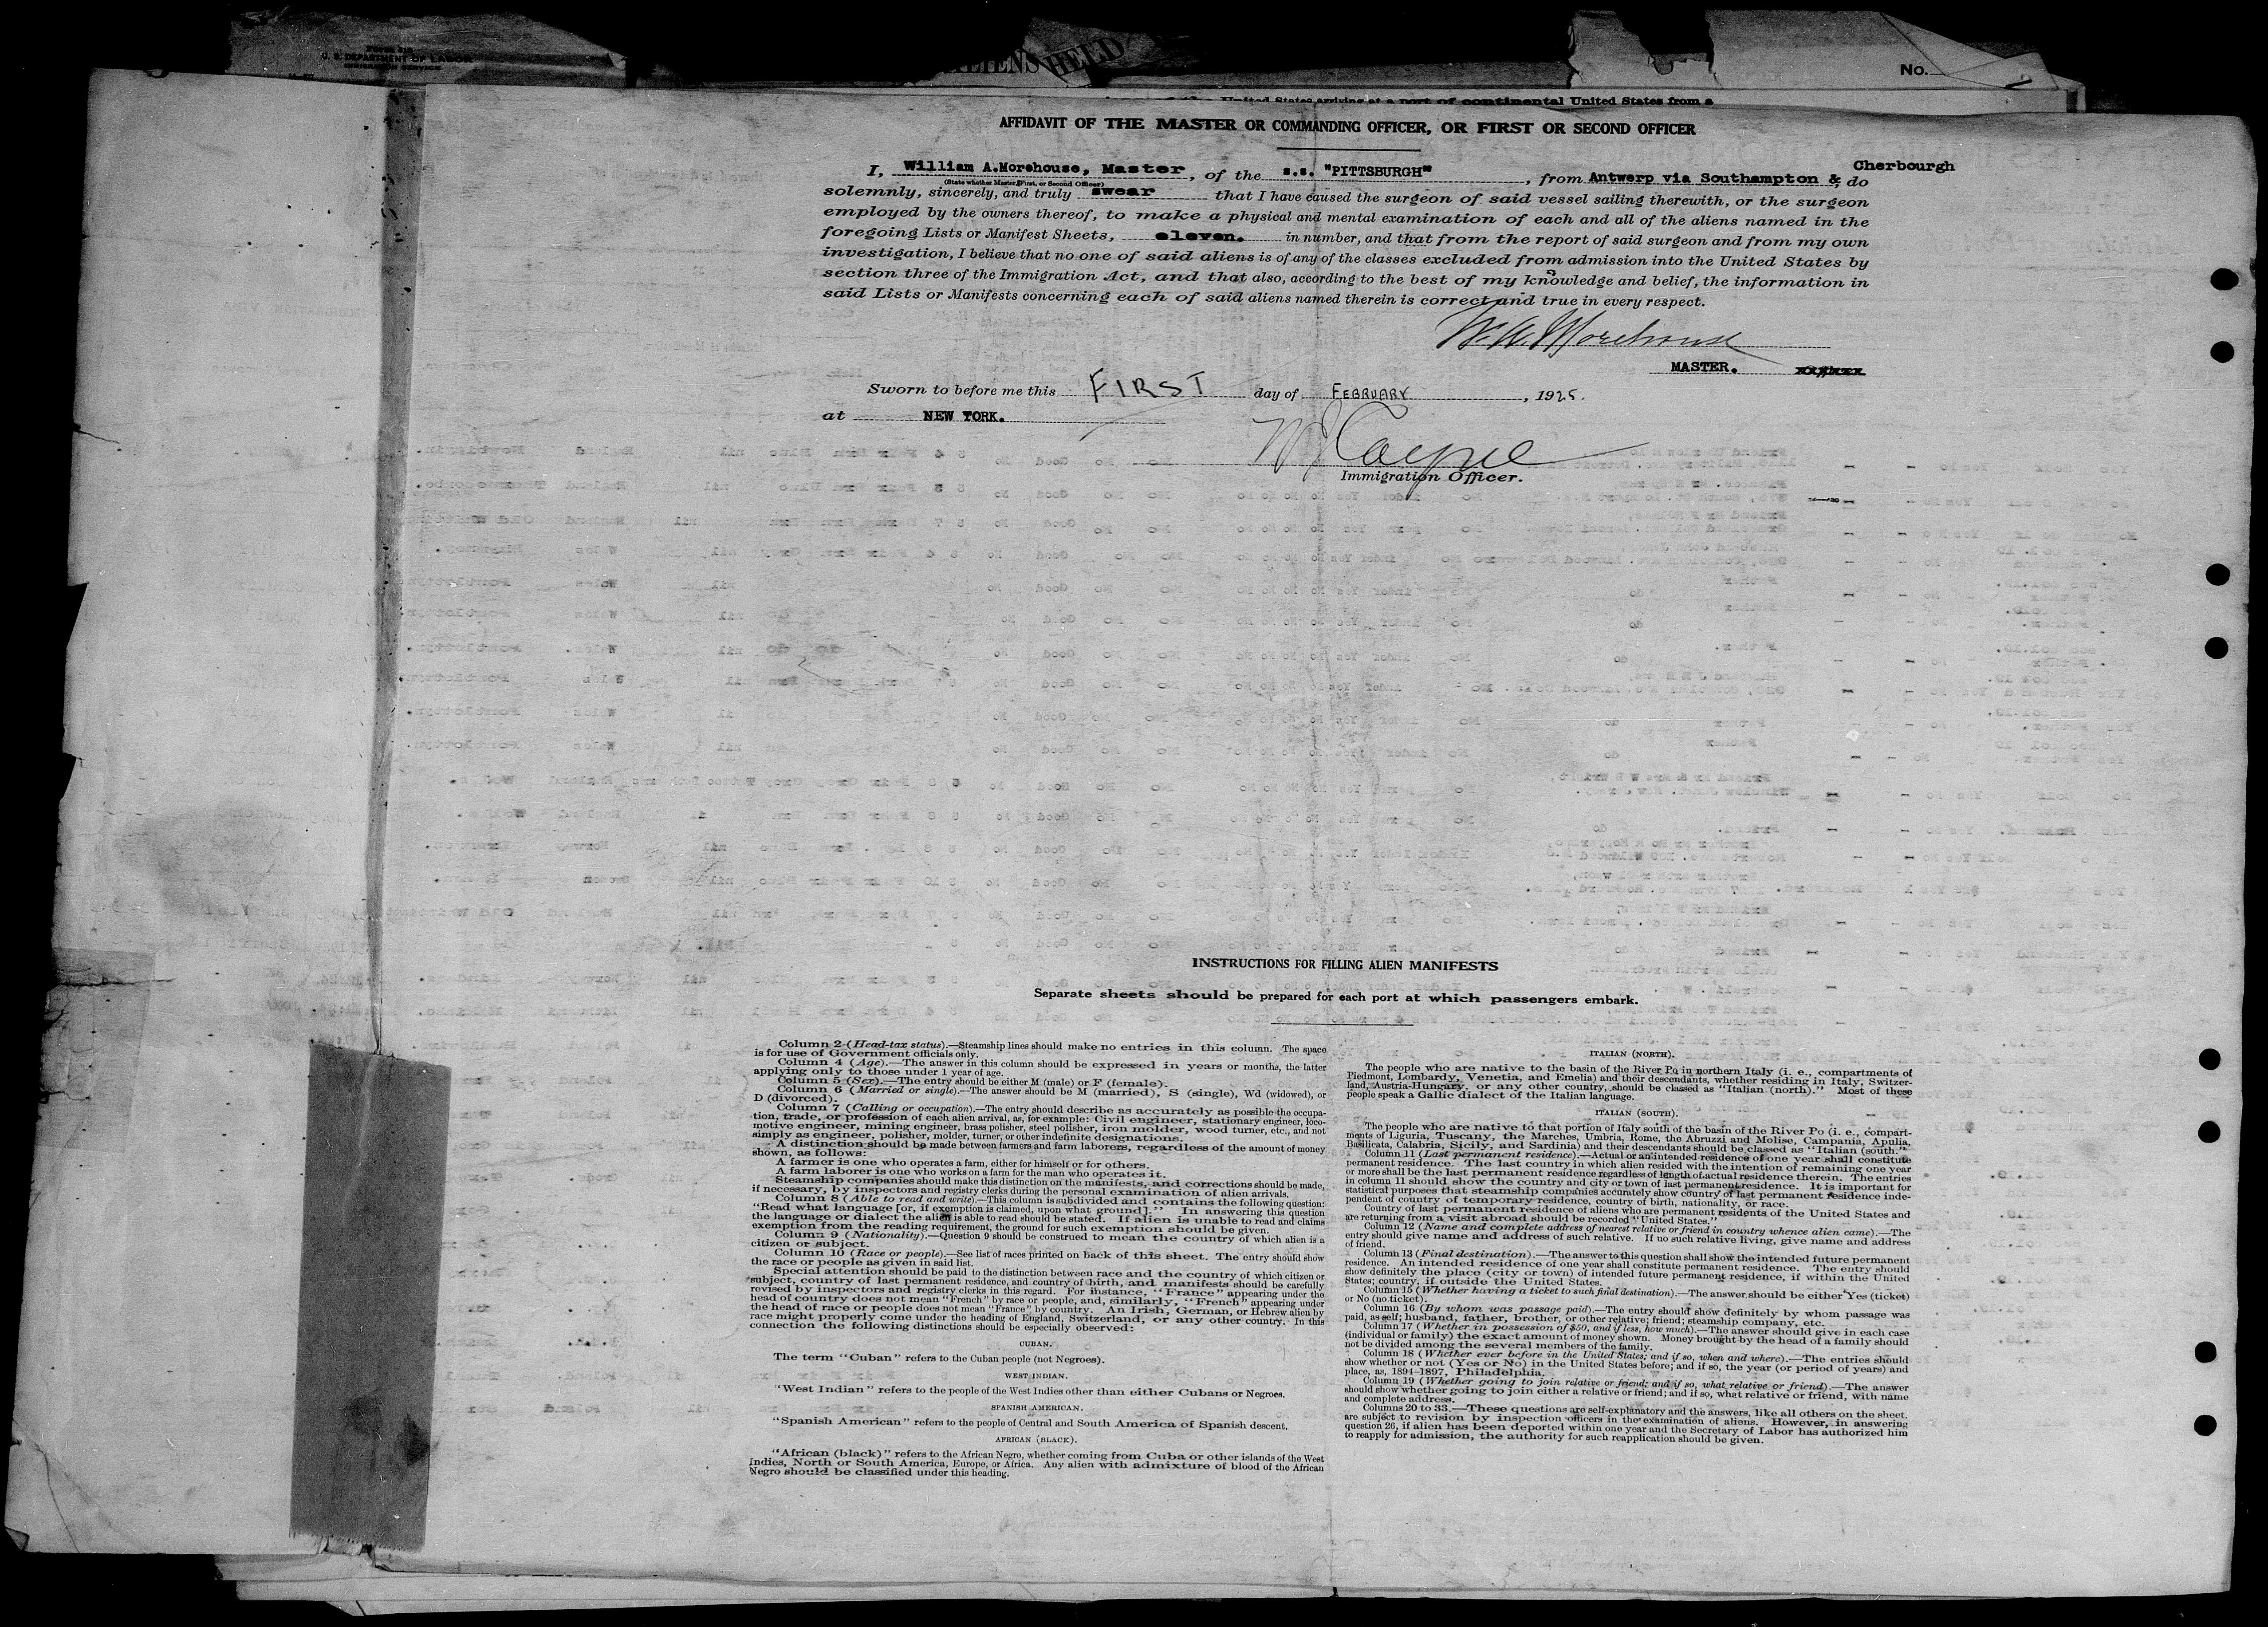 U. S. DEPARTMENT OF LABOR
IMMIGRATION SERVICE
ALIENS HELD
No.
United States arriving at a port of continental United States from a
AFFIDAVIT OF THE MASTER OR COMMANDING OFFICER, OR FIRST OR SECOND OFFICER
Cherbourgh
I, William A.Morehouse, Master, of the s.s. "PITTSBURGH", from Antwerp via Southampton & do
(State whether Master, First, or Second Officer)
solemnly, sincerely, and truly swear that I have caused the surgeon of said vessel sailing therewith, or the surgeon
employed by the owners thereof, to make a physical and mental examination of each and all of the aliens named in the
foregoing Lists or Manifest Sheets, eleven. in number, and that from the report of said surgeon and from my own
investigation, I believe that no one of said aliens is of any of the classes excluded from admission into the United States by
section three of the Immigration Act, and that also, according to the best of my knowledge and belief, the information in
said Lists or Manifests concerning each of said aliens named therein is correct and true in every respect.
W. A. Morehouse
MASTER.
Sworn to before me this FIRST day of FEBRUARY, 1925.
at NEW YORK.
Immigration Officer.
INSTRUCTIONS FOR FILLING ALIEN MANIFESTS
Separate sheets should be prepared for each port at which passengers embark.
Column 2 (Head-tax status).—Steamship lines should make no entries in this column. The space
is for use of Government officials only.
Column 4 (Age).—The answer in this column should be expressed in years or months, the latter
applying only to those under 1 year of age.
Column 5 (Sex).—The entry should be either M (male) or F (female).
Column 6 (Married or single).—The answer should be M (married), S (single), Wd (widowed), or
D (divorced).
Column 7 (Calling or occupation).—The entry should describe as accurately as possible the occupa-
tion, trade, or profession of each alien arrival, as, for example: Civil engineer, stationary engineer, loco-
motive engineer, mining engineer, brass polisher, steel polisher, iron molder, wood turner, etc., and not
simply as engineer, polisher, molder, turner, or other indefinite designations.
A distinction should be made between farmers and farm laborers, regardless of the amount of money
shown, as follows:
A farmer is one who operates a farm, either for himself or for others.
A farm laborer is one who works on a farm for the man who operates it.
Steamship companies should make this distinction on the manifests, and corrections should be made,
if necessary, by inspectors and registry clerks during the personal examination of alien arrivals.
Column 8 (Able to read and write).—This column is subdivided and contains the following question:
"Read what language [or, if exemption is claimed, upon what ground]." In answering this question
the language or dialect the alien is able to read should be stated. If alien is unable to read and claims
exemption from the reading requirement, the ground for such exemption should be given.
Column 9 (Nationality).—Question 9 should be construed to mean the country of which alien is a
citizen or subject.
Column 10 (Race or people).—See list of races printed on back of this sheet. The entry should show
the race or people as given in said list.
Special attention should be paid to the distinction between race and the country of which citizen or
subject, country of last permanent residence, and country of birth, and manifests should be carefully
revised by inspectors and registry clerks in this regard. For instance, "France" appearing under the
head of country does not mean "French" by race or people, and, similarly, "French" appearing under
the head of race or people does not mean "France" by country. An Irish, German, or Hebrew alien by
race might properly come under the heading of England, Switzerland, or any other country. In this
connection the following distinctions should be especially observed:
CUBAN.
The term "Cuban" refers to the Cuban people (not Negroes).
WEST INDIAN.
"West Indian" refers to the people of the West Indies other than either Cubans or Negroes.
SPANISH AMERICAN.
"Spanish American" refers to the people of Central and South America of Spanish descent.
AFRICAN (BLACK).
"African (black)" refers to the African Negro, whether coming from Cuba or other islands of the West
Indies, North or South America, Europe, or Africa. Any alien with admixture of blood of the African
Negro should be classified under this heading.
ITALIAN (NORTH).
The people who are native to the basin of the River Po in northern Italy (i. e., compartments of
Piedmont, Lombardy, Venetia, and Emelia) and their descendants, whether residing in Italy, Switzer-
land, Austria-Hungary, or any other country, should be classed as "Italian (north)." Most of these
people speak a Gallic dialect of the Italian language.
ITALIAN (SOUTH).
The people who are native to that portion of Italy south of the basin of the River Po (i. e., compart-
ments of Liguria, Tuscany, the Marches, Umbria, Rome, the Abruzzi and Molise, Campania, Apulia,
Basilicata, Calabria, Sicily, and Sardinia) and their descendants should be classed as "Italian (south)."
Column 11 (Last permanent residence).—Actual or an intended residence of one year shall constitute
permanent residence. The last country in which alien resided with the intention of remaining one year
or more shall be the last permanent residence regardless of length of actual residence therein. The entries
in column 11 should show the country and city or town of last permanent residence. It is important for
statistical purposes that steamship companies accurately show country of last permanent residence inde-
pendent of country of temporary residence, country of birth, nationality, or race.
Country of last permanent residence of aliens who are permanent residents of the United States and
are returning from a visit abroad should be recorded "United States."
Column 12 (Name and complete address of nearest relative or friend in country whence alien came).—The
entry should give name and address of such relative. If no such relative living, give name and address
of friend.
Column 13 (Final destination).—The answer to this question shall show the intended future permanent
residence. An intended residence of one year shall constitute permanent residence. The entry should
show definitely the place (city or town) of intended future permanent residence, if within the United
States; country, if outside the United States.
Column 15 (Whether having a ticket to such final destination).—The answer should be either Yes (ticket)
or No (no ticket).
Column 16 (By whom was passage paid).—The entry should show definitely by whom passage was
paid, as self; husband, father, brother, or other relative; friend; steamship company, etc.
Column 17 (Whether in possession of $50, and if less, how much).—The answer should give in each case
(individual or family) the exact amount of money shown. Money brought by the head of a family should
not be divided among the several members of the family.
Column 18 (Whether ever before in the United States; and if so, when and where).—The entries should
show whether or not (Yes or No) in the United States before; and if so, the year (or period of years) and
place, as, 1894-1897, Philadelphia.
Column 19 (Whether going to join relative or friend; and if so, what relative or friend).—The answer
should show whether going to join either a relative or friend; and if so, what relative or friend, with name
and complete address.
Columns 20 to 33.—These questions are self-explanatory and the answers, like all others on the sheet,
are subject to revision by inspection officers in the examination of aliens. However, in answering
question 26, if alien has been deported within one year and the Secretary of Labor has authorized him
to reapply for admission, the authority for such reapplication should be given.